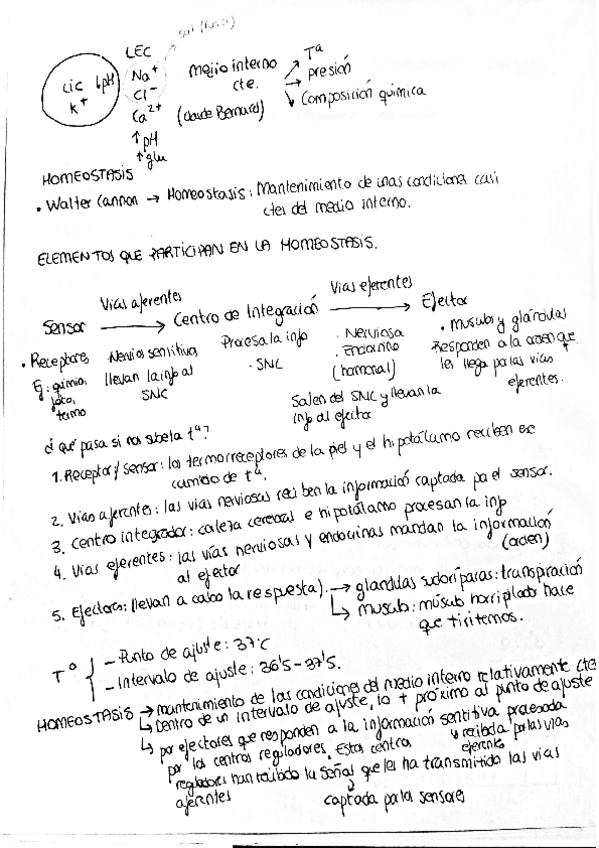 sal (fuera)
LEC
LIC ↓pH
K+
Na+
Cl-
Ca2+
↑pH
↑glu
medio interno
cte.
(Claude Bernard)
Tª
presión
composición química
HOMEOSTASIS
• Walter Cannon → Homeostasis: Mantenimiento de unas condiciones casi
ctes del medio interno.
ELEMENTOS QUE PARTICIPAN EN LA HOMEOSTASIS.
Vías aferentes
Vías eferentes
Sensor → Centro de Integración → Efector
• Receptores
Ej: quimio,
termo
Nervios sensitivos
llevan la info al
SNC
Procesa la info
• SNC
• Nerviosa
• Endocrino
(hormonal)
Salen del SNC y llevan la
info al efector
• Musculos y glándulas
Responden a la orden que
les llega por las vías
eferentes.
¿Qué pasa si nos sube la tª?
1. Receptor/sensor: los termorreceptores de la piel y el hipotálamo reciben ese
cambio de tª.
2. Vías aferentes: las vías nerviosas reciben la información captada por el sensor.
3. Centro integrador: corteza cerebral e hipotálamo procesan la info
4. Vías eferentes: las vías nerviosas y endocrinas mandan la información
al efector
(orden)
5. Efectores: llevan a cabo la respuesta). → glandulas sudoríparas: transpiración
↳ musculo: músculo horripilado hace
que tiritemos.
Tº
- Punto de ajuste: 37ºC
- Intervalo de ajuste: 36'5 - 37'5.
HOMEOSTASIS → mantenimiento de las condiciones del medio interno relativamente ctes
↳ Dentro de un intervalo de ajuste, lo + próximo al punto de ajuste
↳ por efectores que responden a la información sentitiva procesada
por los centros reguladores. Estos centros
y recibida por las vias
eferentes
reguladores han recibido la señal que les ha transmitido las vías
aferentes
captada por los sensores